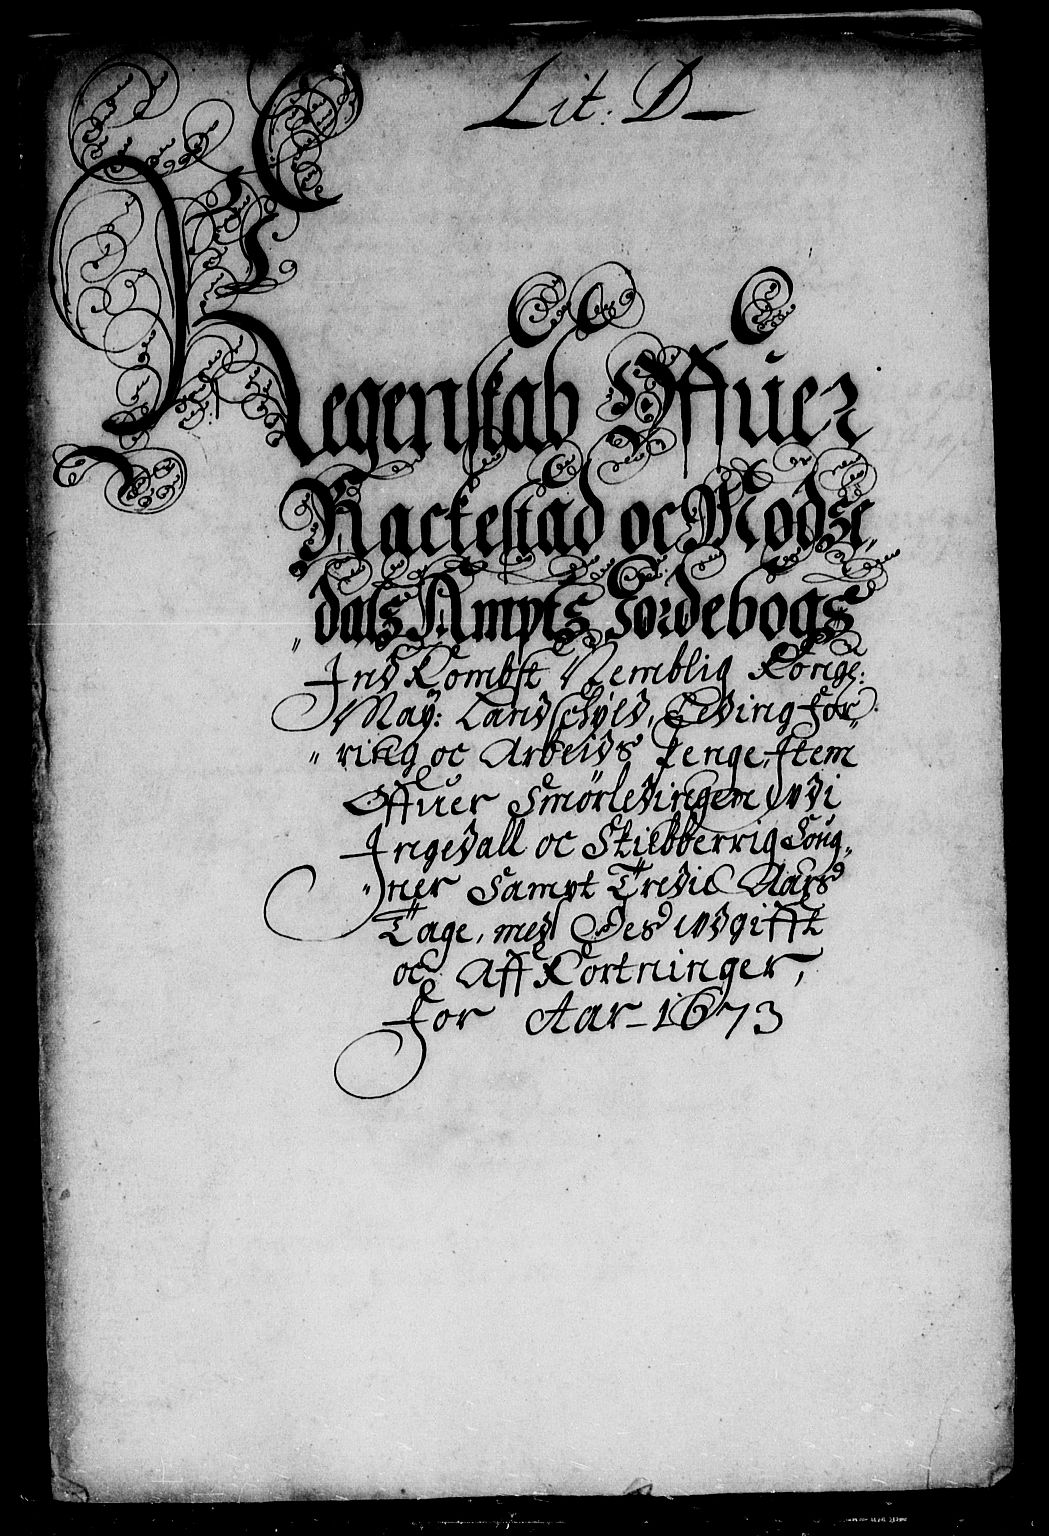 Lit: D
Regenskab Offuer
Rackestad oc Modße„
„dals Ampts Jordebogs
Ind Kombst Nemblig Kongl:
May: Landschyld, Leding For„
„ring oc Arbeids Penge, Item
Offuer Smörledingen udi
Ingedall oc Skiebberrig Soug„
„ner Sampt Tredie Aars
Tage, med Des udgifft
oc Aff Kortninger,
for Aar 1673